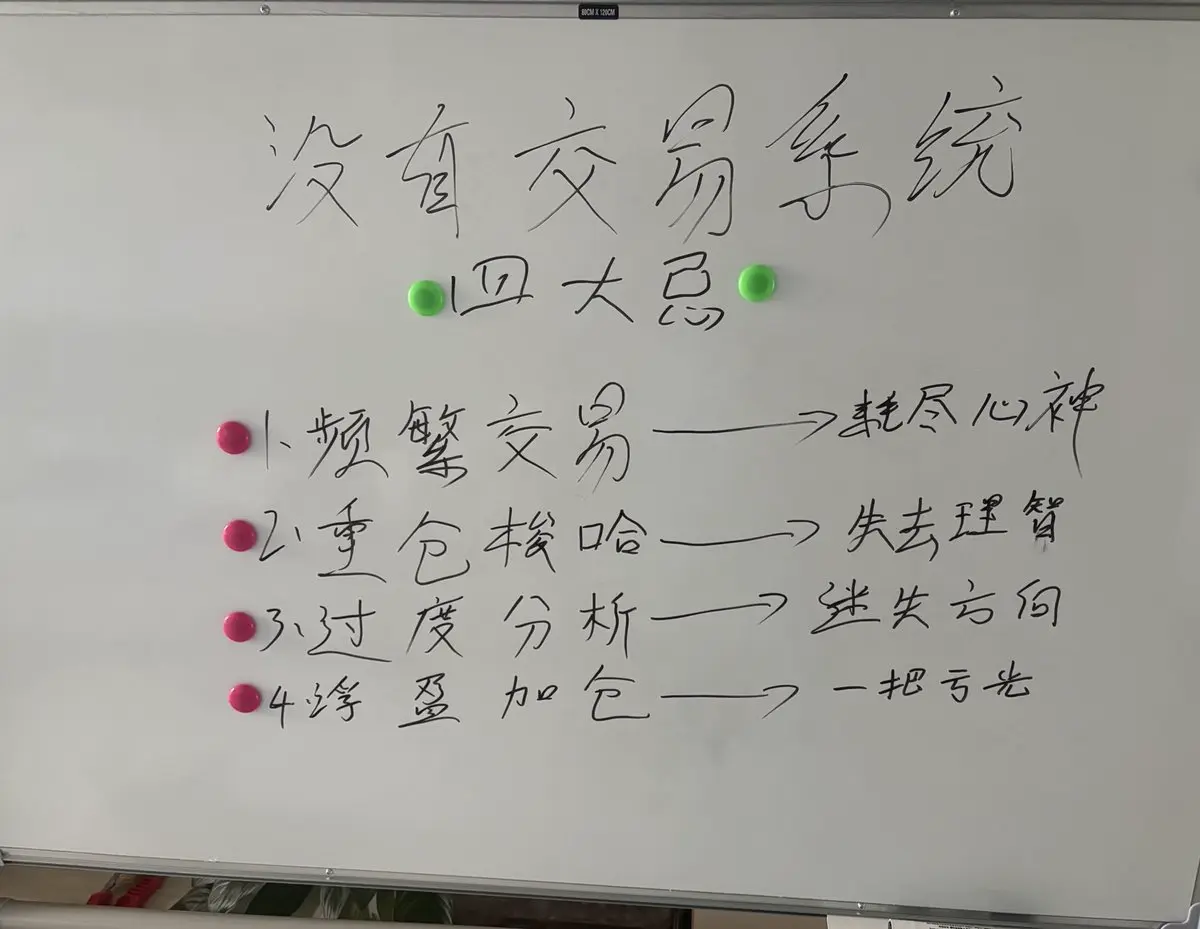 60CM X 120CM
没有交易系统
四大忌
1、频繁交易 → 耗尽心神
2、重仓梭哈 → 失去理智
3、过度分析 → 迷失方向
4、浮盈加仓 → 一把亏光